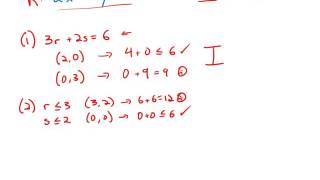 (1) 3r + 2s = 6 ←
(2,0) → 4+0 ≤ 6 ✓
I
(0,3) → 0+9 = 9
(2) r ≤ 3 (3,2) → 6+6=12
s ≤ 2 (0,0) → 0+0 ≤ 6 ✓